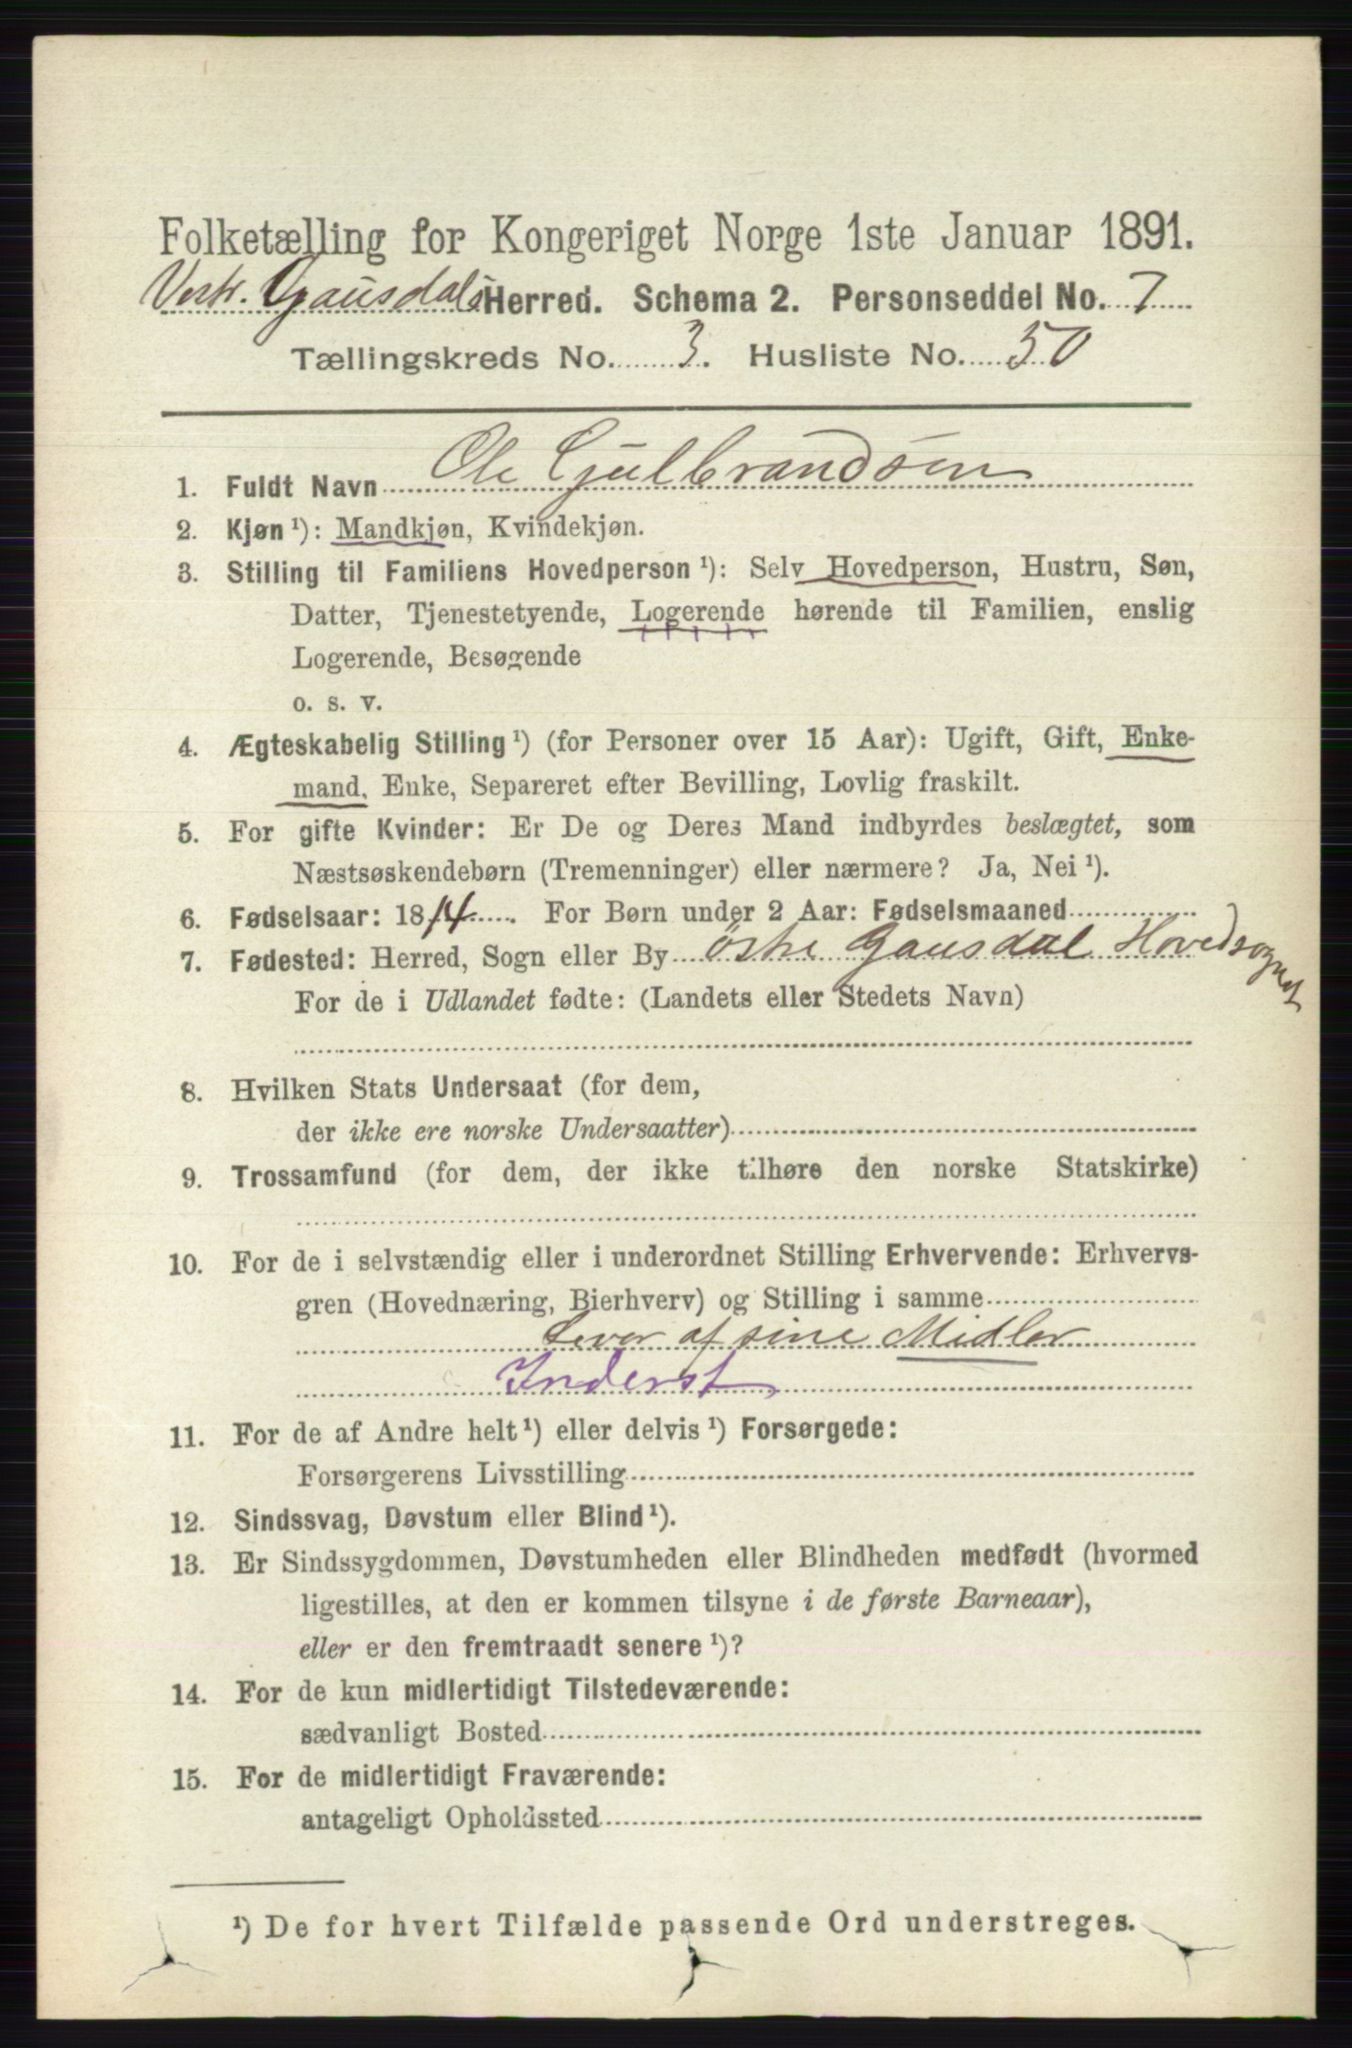 Folketælling for Kongeriget Norge 1ste Januar 1891.
Vestr. Gausdals Herred. Schema 2. Personseddel No. 7
Tællingskreds No. 3. Husliste No. 50
1. Fuldt Navn Ole Gulbrandsen
2. Kjøn ¹): Mandkjøn, Kvindekjøn.
3. Stilling til Familiens Hovedperson ¹): Selv Hovedperson, Hustru, Søn,
Datter, Tjenestetyende, Logerende hørende til Familien, enslig
Logerende, Besøgende
o. s. v.
4. Ægteskabelig Stilling ¹) (for Personer over 15 Aar): Ugift, Gift, Enke-
mand, Enke, Separeret efter Bevilling, Lovlig fraskilt.
5. For gifte Kvinder: Er De og Deres Mand indbyrdes beslægtet, som
Næstsøskendebørn (Tremenninger) eller nærmere? Ja, Nei ¹).
6. Fødselsaar: 1814. For Børn under 2 Aar: Fødselsmaaned
7. Fødested: Herred, Sogn eller By Østre Gausdal Hovedsognet
For de i Udlandet fødte: (Landets eller Stedets Navn)
8. Hvilken Stats Undersaat (for dem,
der ikke ere norske Undersaatter)
9. Trossamfund (for dem, der ikke tilhøre den norske Statskirke)
10. For de i selvstændig eller i underordnet Stilling Erhvervende: Erhvervs-
gren (Hovednæring, Bierhverv) og Stilling i samme
Lever af sine Midler
Inderst
11. For de af Andre helt ¹) eller delvis ¹) Forsørgede:
Forsørgerens Livsstilling
12. Sindssvag, Døvstum eller Blind ¹).
13. Er Sindssygdommen, Døvstumheden eller Blindheden medfødt (hvormed
ligestilles, at den er kommen tilsyne i de første Barneaar),
eller er den fremtraadt senere ¹)?
14. For de kun midlertidigt Tilstedeværende:
sædvanligt Bosted
15. For de midlertidigt Fraværende:
antageligt Opholdssted
¹) De for hvert Tilfælde passende Ord understreges.